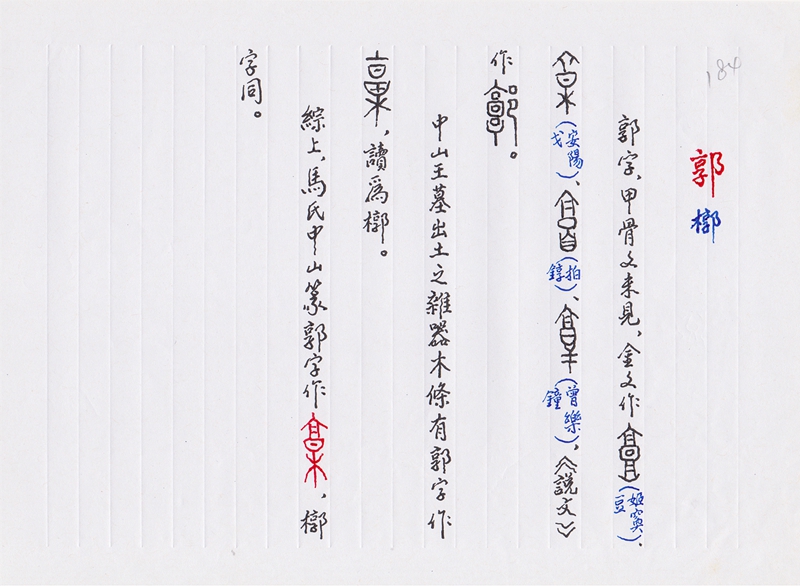 184
郭 槨
郭字、甲骨文未見、金文作(姬寏豆)、
(安陽戈)、(拍錞)、(曾樂鐘)，《說文》
作。
中山王墓出土之雜器木條有郭字作
，讀爲槨。
綜上、馬氏中山篆郭字作，槨
字同。